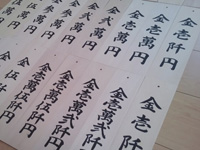 金壱阡円
金壱萬円
金弐萬円
弐萬円
萬円
金壱阡
金壱萬弐阡
金壱萬弐阡
金壱萬伍阡
金壱萬伍阡円
伍阡円